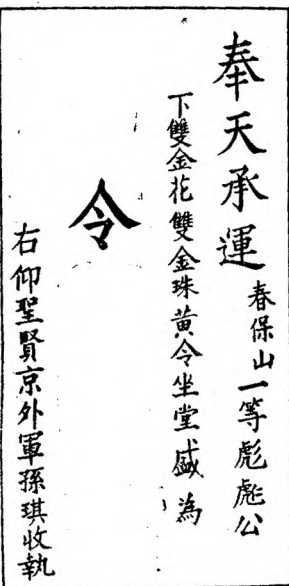 奉天承運
春保山一等彪彪公
下雙金花雙金珠黃令坐堂盛為
令
右仰聖賢京外軍孫琪收執